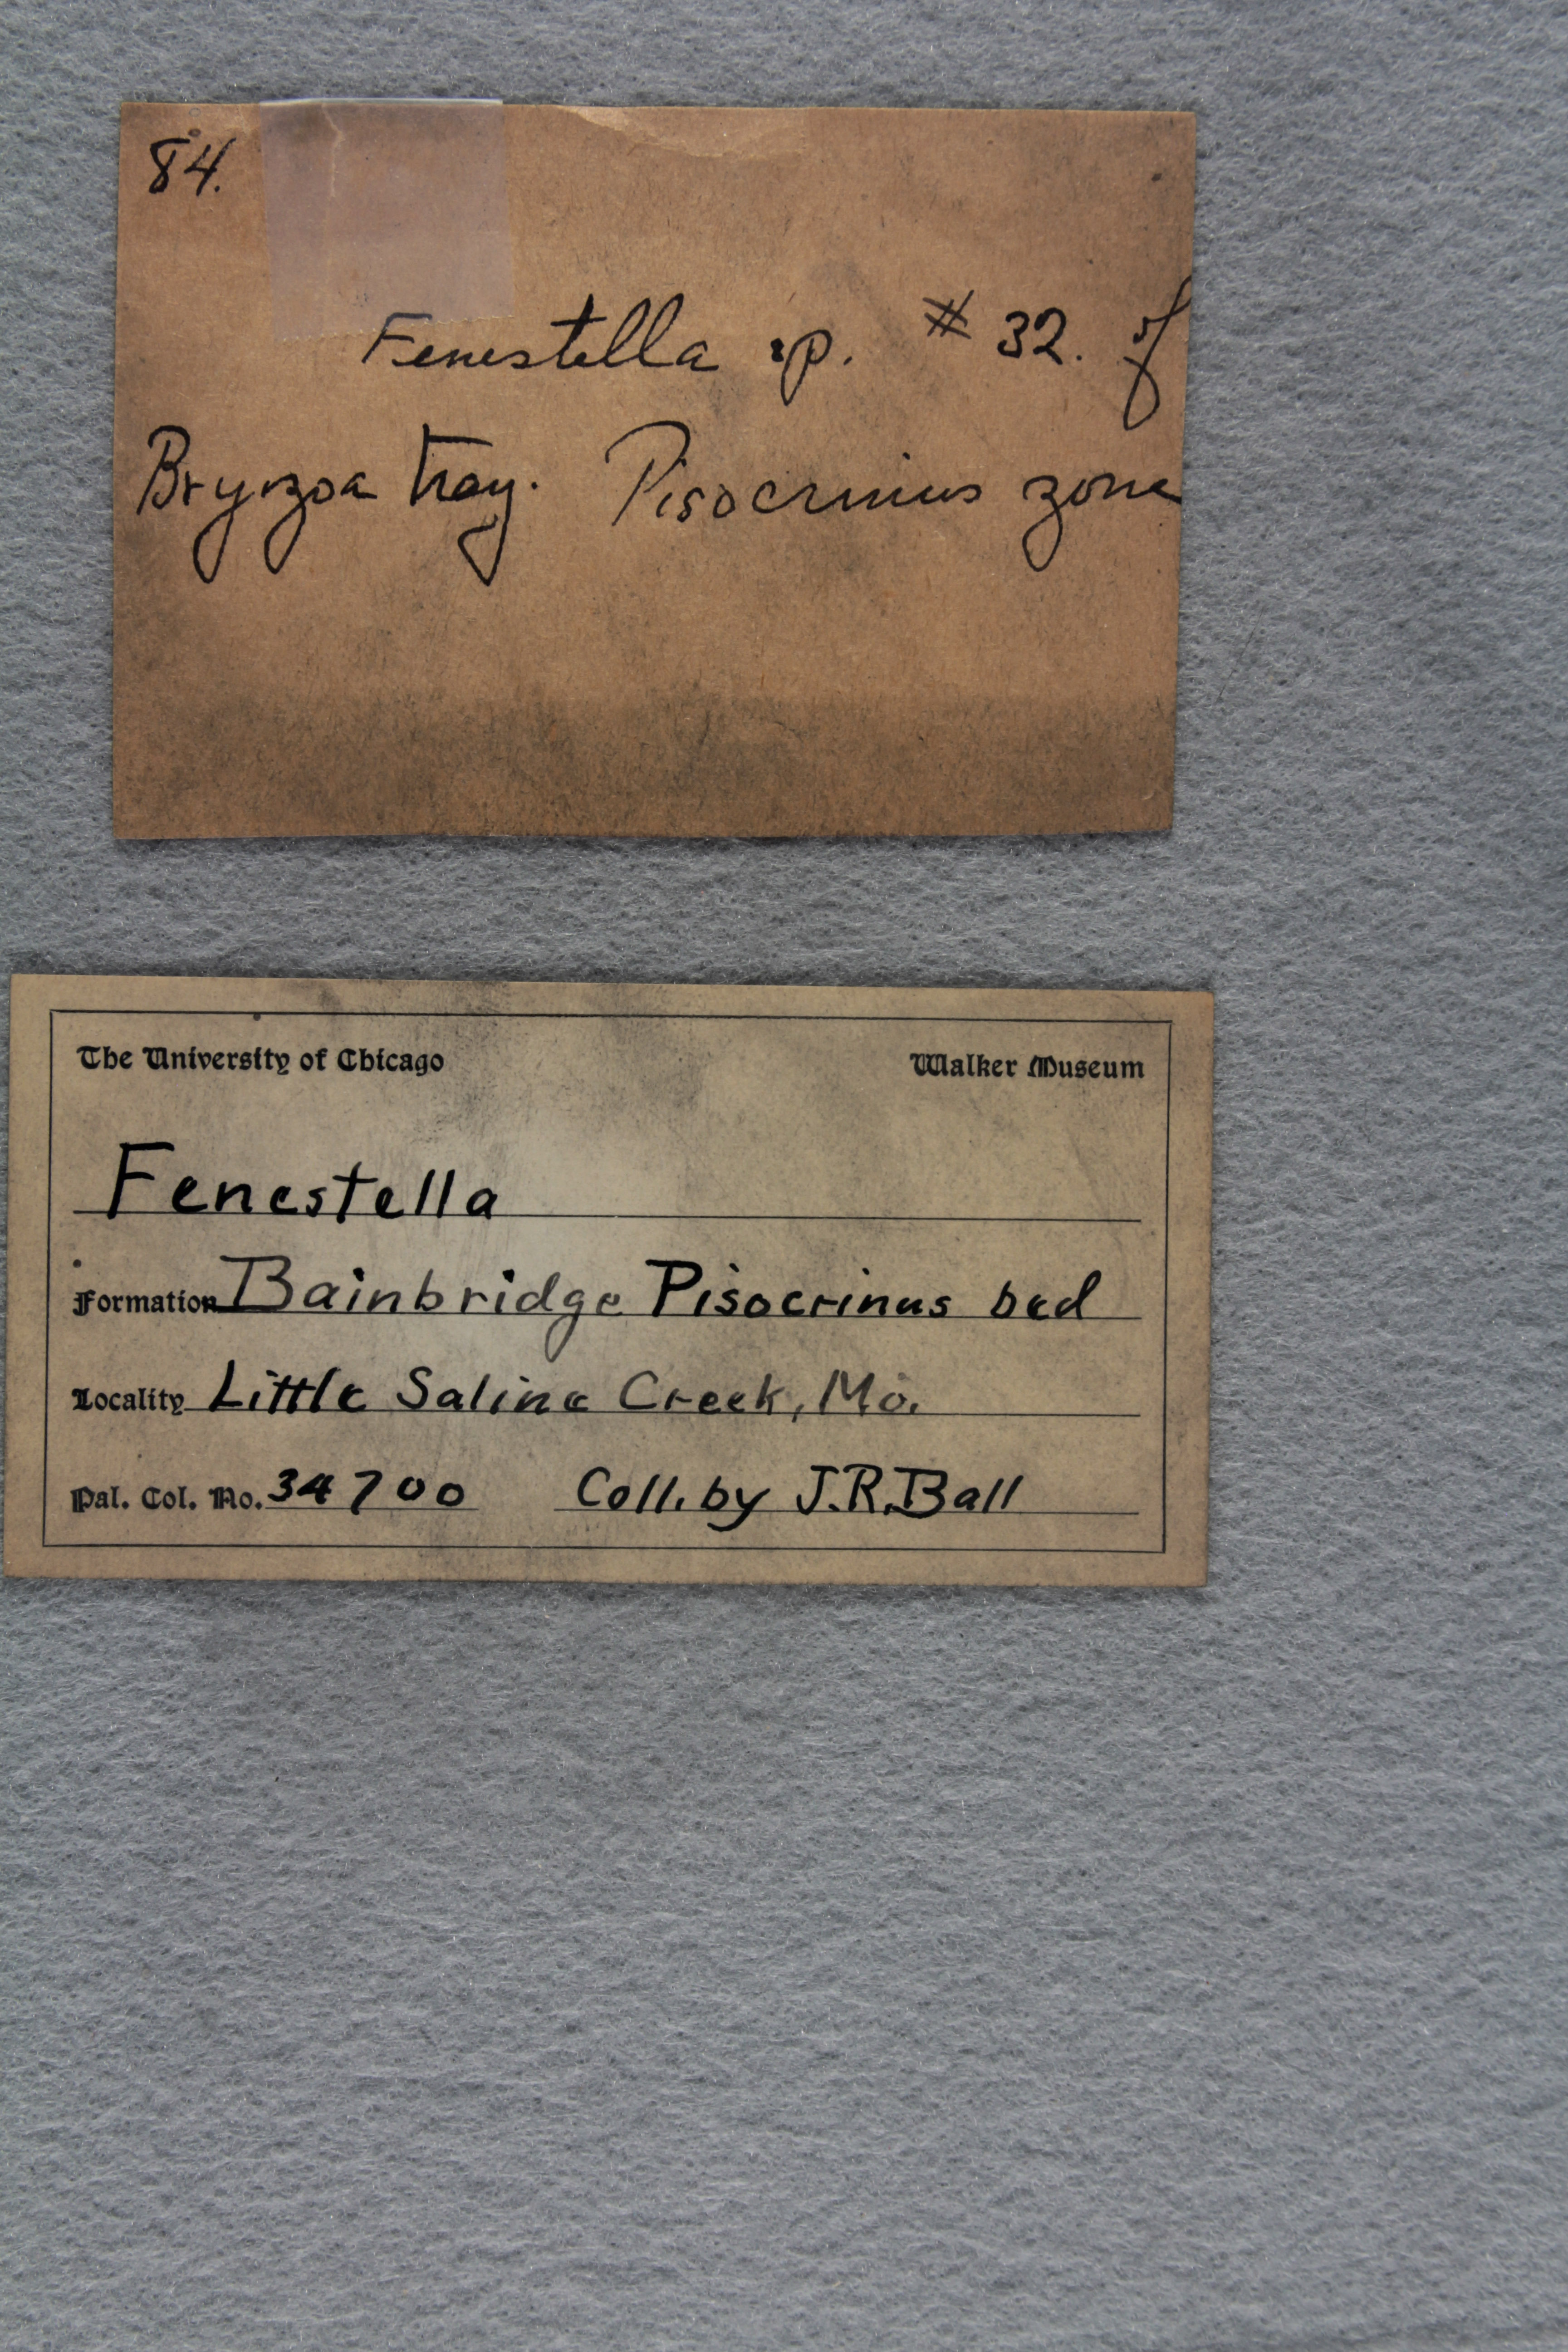 84.
Fenestella sp. # 32. of
Bryozoa tray. Pisocrinus zone
The University of Chicago Walker Museum
Fenestella
Formation Bainbridge Pisocrinus bed
Locality Little Saline Creek, Mo.
Pal. Col. No. 34700 Coll. by J.R. Ball